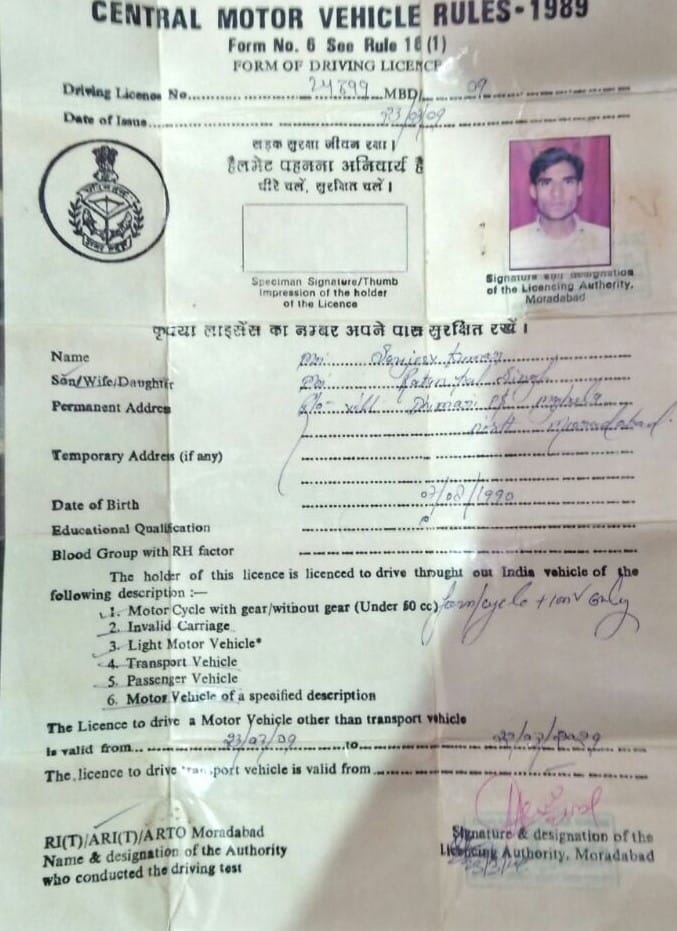 CENTRAL MOTOR VEHICLE RULES-1989
Form No. 6 See Rule 16 (1)
FORM OF DRIVING LICENCE
Driving Licence No. 24899 MBD/ 09
Date of Issue 23/07/09
सड़क सुरक्षा जीवन रक्षा।
हैलमेट पहनना अनिवार्य है
धीरे चलें, सुरक्षित चलें।
Specimen Signature/Thumb
impression of the holder
of the Licence
Signature and designation
of the Licencing Authority,
Moradabad
कृपया लाइसेंस का नम्बर अपने पास सुरक्षित रखें।
Name Kumar
Son/Wife/Daughter Singh
Permanent Address
Moradabad
Temporary Address (if any)
Date of Birth /08/1990
Educational Qualification
Blood Group with RH factor
The holder of this licence is licenced to drive throught out India vehicle of the
following description :—
1. Motor Cycle with gear/without gear (Under 50 cc) m/cycle + LMV only
2. Invalid Carriage
3. Light Motor Vehicle*
4. Transport Vehicle
5. Passenger Vehicle
6. Motor Vehicle of a specified description
The Licence to drive a Motor Vehicle other than transport vehicle
is valid from 23/07/09 to 22/07/2029
The licence to drive transport vehicle is valid from
RI(T)/ARI(T)/ARTO Moradabad
Name & designation of the Authority
who conducted the driving test
Signature & designation of the
Licencing Authority, Moradabad